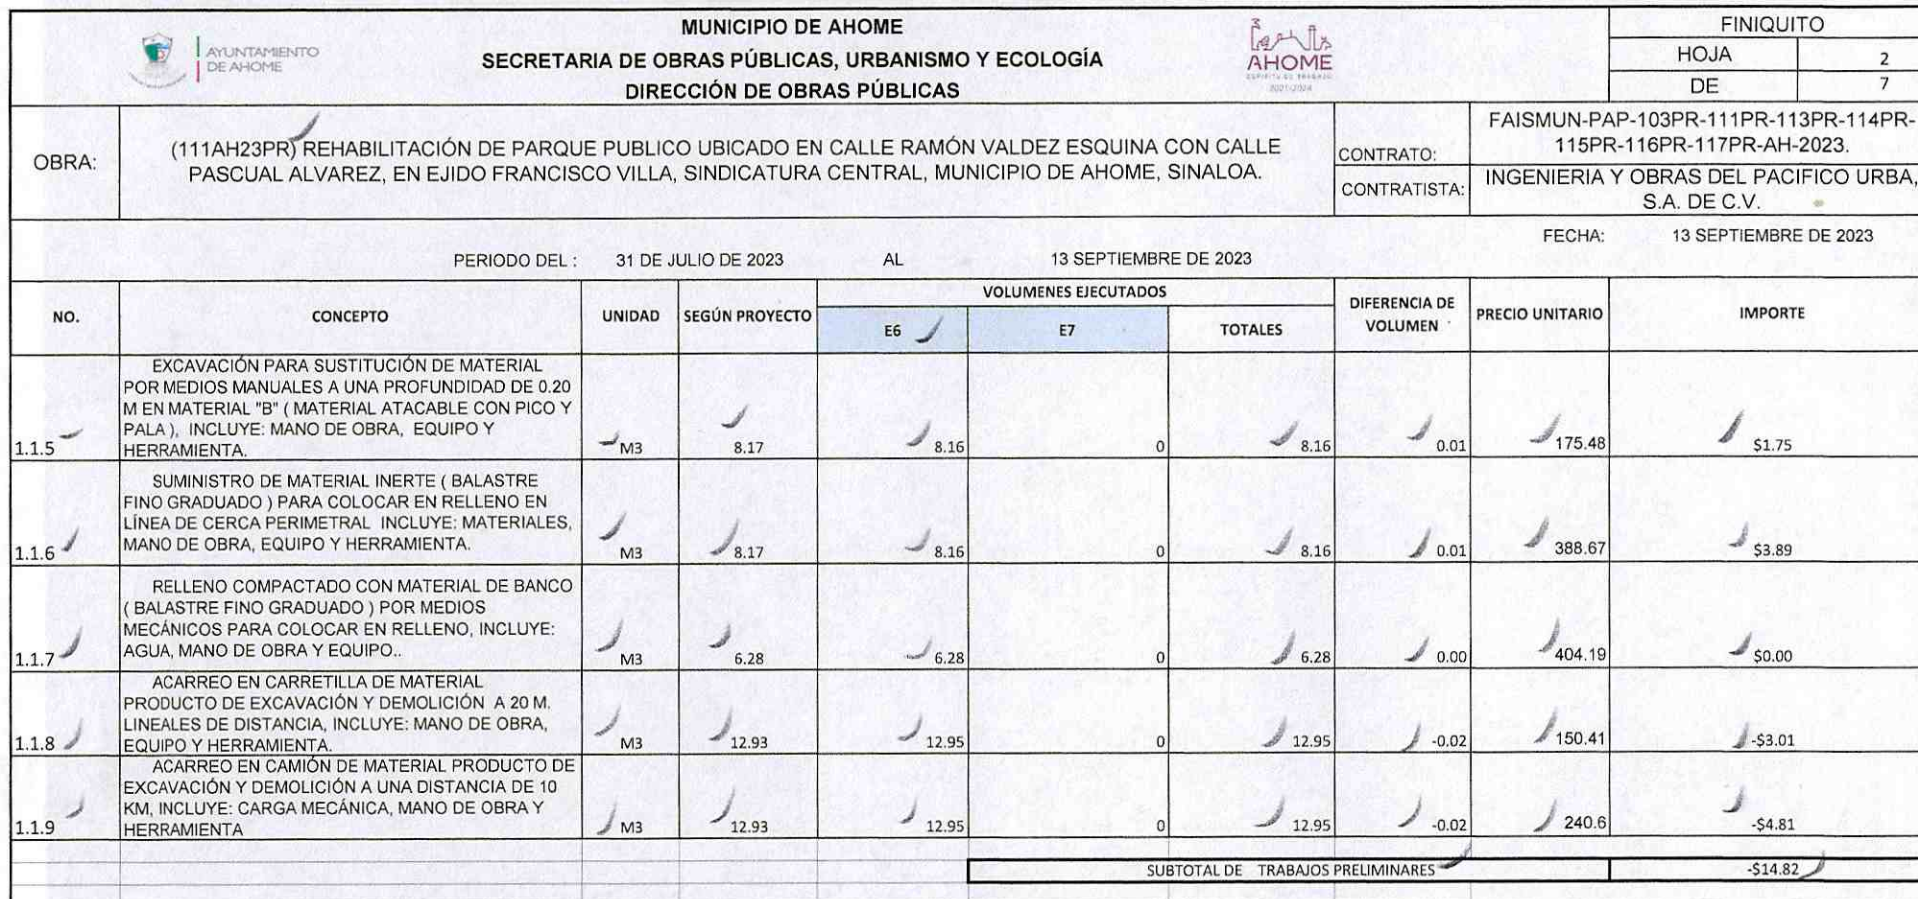 AYUNTAMIENTO
DE AHOME
MUNICIPIO DE AHOME
SECRETARIA DE OBRAS PÚBLICAS, URBANISMO Y ECOLOGÍA
DIRECCIÓN DE OBRAS PÚBLICAS
AHOME
ESPÍRITU DE TRABAJO
2021/2024
FINIQUITO
HOJA 2
DE 7
OBRA:
(111AH23PR) REHABILITACIÓN DE PARQUE PUBLICO UBICADO EN CALLE RAMÓN VALDEZ ESQUINA CON CALLE
PASCUAL ALVAREZ, EN EJIDO FRANCISCO VILLA, SINDICATURA CENTRAL, MUNICIPIO DE AHOME, SINALOA.
CONTRATO:
FAISMUN-PAP-103PR-111PR-113PR-114PR-
115PR-116PR-117PR-AH-2023.
CONTRATISTA:
INGENIERIA Y OBRAS DEL PACIFICO URBA,
S.A. DE C.V.
FECHA: 13 SEPTIEMBRE DE 2023
PERIODO DEL : 31 DE JULIO DE 2023 AL 13 SEPTIEMBRE DE 2023
NO. CONCEPTO UNIDAD SEGÚN PROYECTO
VOLUMENES EJECUTADOS
E6 E7 TOTALES
DIFERENCIA DE
VOLUMEN
PRECIO UNITARIO IMPORTE
EXCAVACIÓN PARA SUSTITUCIÓN DE MATERIAL
POR MEDIOS MANUALES A UNA PROFUNDIDAD DE 0.20
M EN MATERIAL "B" ( MATERIAL ATACABLE CON PICO Y
PALA ), INCLUYE: MANO DE OBRA, EQUIPO Y
HERRAMIENTA.
1.1.5 M3 8.17 8.16 0 8.16 0.01 175.48 $1.75
SUMINISTRO DE MATERIAL INERTE ( BALASTRE
FINO GRADUADO ) PARA COLOCAR EN RELLENO EN
LÍNEA DE CERCA PERIMETRAL INCLUYE: MATERIALES,
MANO DE OBRA, EQUIPO Y HERRAMIENTA.
1.1.6 M3 8.17 8.16 0 8.16 0.01 388.67 $3.89
RELLENO COMPACTADO CON MATERIAL DE BANCO
( BALASTRE FINO GRADUADO ) POR MEDIOS
MECÁNICOS PARA COLOCAR EN RELLENO, INCLUYE:
AGUA, MANO DE OBRA Y EQUIPO..
1.1.7 M3 6.28 6.28 0 6.28 0.00 404.19 $0.00
ACARREO EN CARRETILLA DE MATERIAL
PRODUCTO DE EXCAVACIÓN Y DEMOLICIÓN A 20 M.
LINEALES DE DISTANCIA, INCLUYE: MANO DE OBRA,
EQUIPO Y HERRAMIENTA.
1.1.8 M3 12.93 12.95 0 12.95 -0.02 150.41 -$3.01
ACARREO EN CAMIÓN DE MATERIAL PRODUCTO DE
EXCAVACIÓN Y DEMOLICIÓN A UNA DISTANCIA DE 10
KM, INCLUYE: CARGA MECÁNICA, MANO DE OBRA Y
HERRAMIENTA
1.1.9 M3 12.93 12.95 0 12.95 -0.02 240.6 -$4.81
SUBTOTAL DE TRABAJOS PRELIMINARES -$14.82